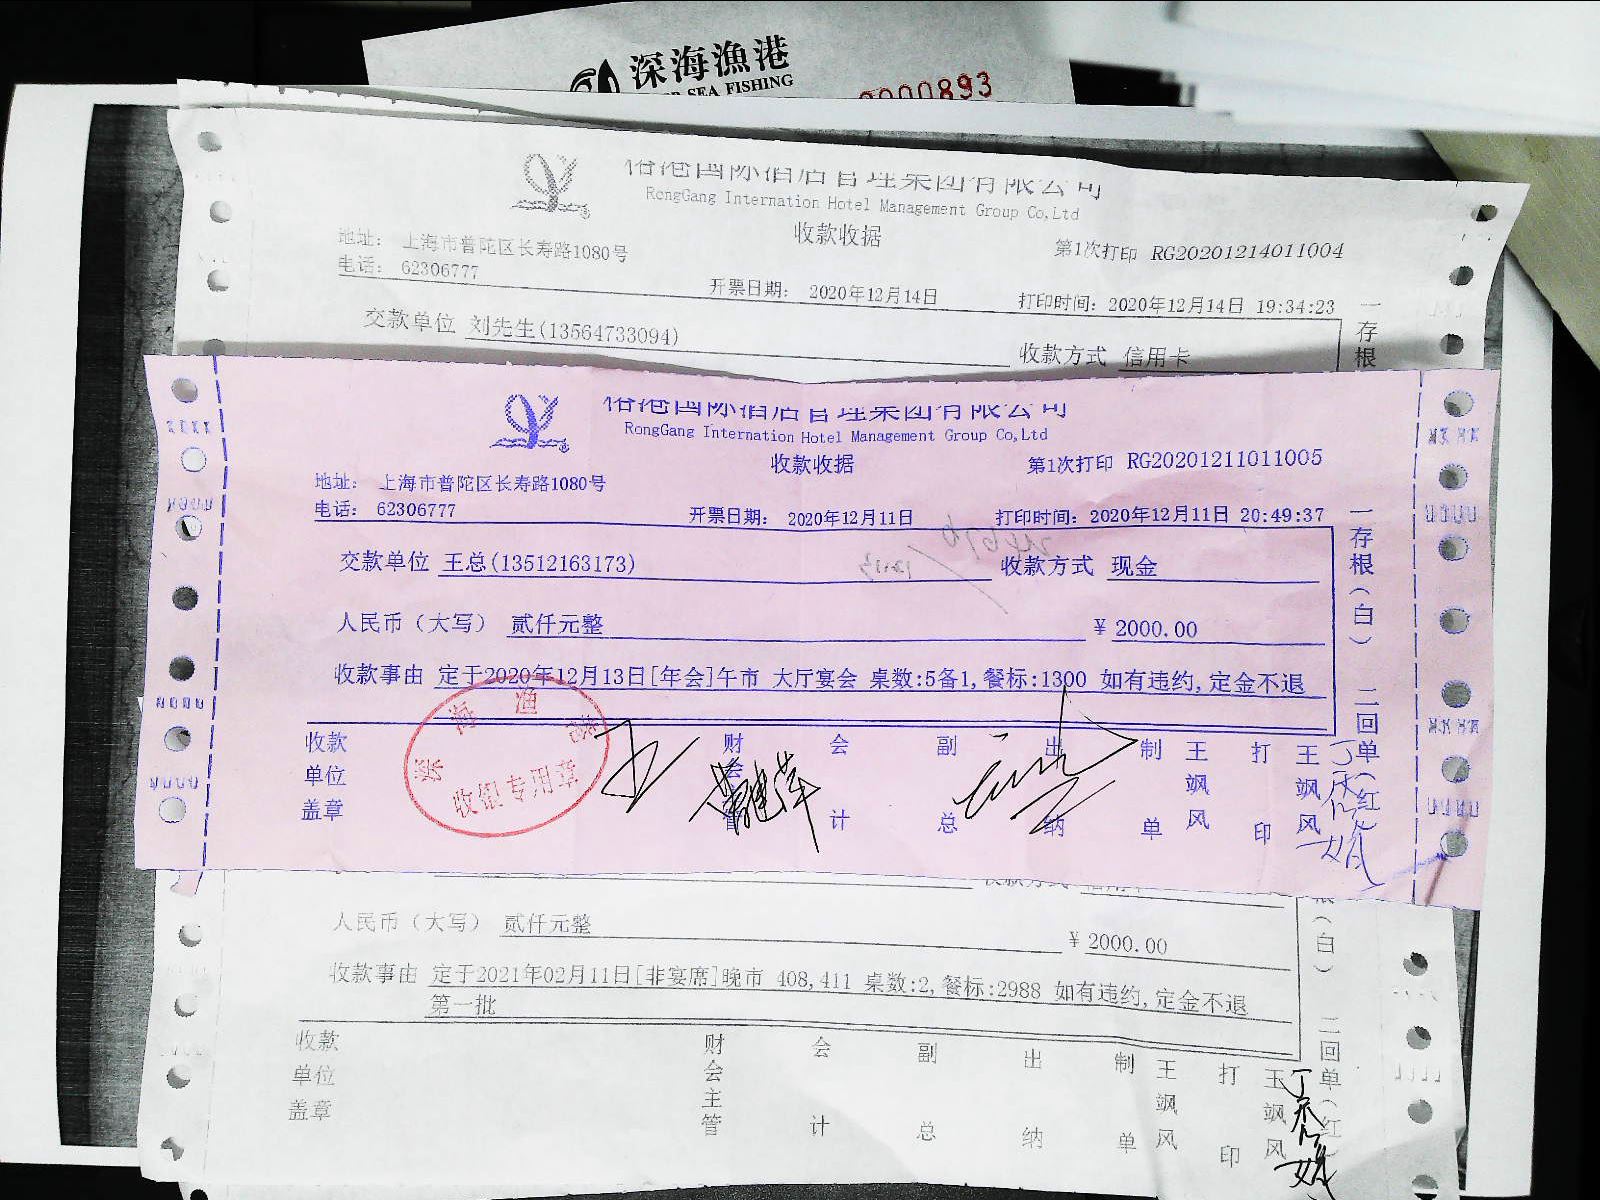 深海漁港
SEA FISHING
0000893
国际酒店管理集团有限公司
RongGang Internation Hotel Management Group Co,Ltd
收款收据
第1次打印 RG20201214011004
地址: 上海市普陀区长寿路1080号
电话: 62306777
开票日期: 2020年12月14日
打印时间: 2020年12月14日 19:34:23
交款单位 刘先生(13564733094)
收款方式 信用卡
一存根
国际酒店管理集团有限公司
RongGang Internation Hotel Management Group Co,Ltd
收款收据
第1次打印 RG20201211011005
地址: 上海市普陀区长寿路1080号
电话: 62306777
开票日期: 2020年12月11日
打印时间: 2020年12月11日 20:49:37
交款单位 王总(13512163173)
收款方式 现金
人民币（大写） 贰仟元整
¥ 2000.00
收款事由 定于2020年12月13日[年会]午市 大厅宴会 桌数:5备1,餐标:1300 如有违约,定金不退
一存根(白) 二回单(红)
收款单位盖章
深海渔港
收银专用章
财会主管
会计
副总
出纳
制单
王飒风
打印
王飒风
收款方式 信用卡
人民币（大写） 贰仟元整
¥ 2000.00
收款事由 定于2021年02月11日[非宴席]晚市 408,411 桌数:2,餐标:2988 如有违约,定金不退
第一批
根(白) 二回单(红)
收款单位盖章
财会主管
会计
副总
出纳
制单
王飒风
打印
王飒风